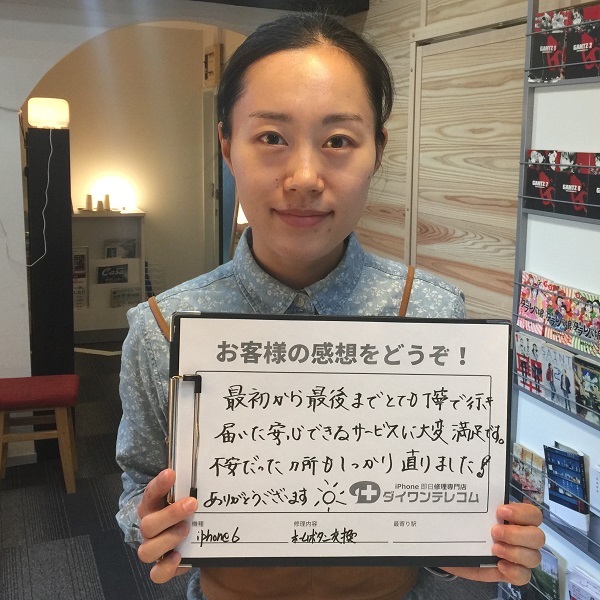 お客様の感想をどうぞ！
最初から最後までとても丁寧で行き
届いた安心できるサービスに大変満足です。
不安だった箇所もしっかり直りました!!
ありがとうございます
iPhone即日修理専門店
ダイワンテレコム
機種
iphone6
修理内容
ホームボタン交換
最寄り駅
GANTZ 1
GANTZ 2